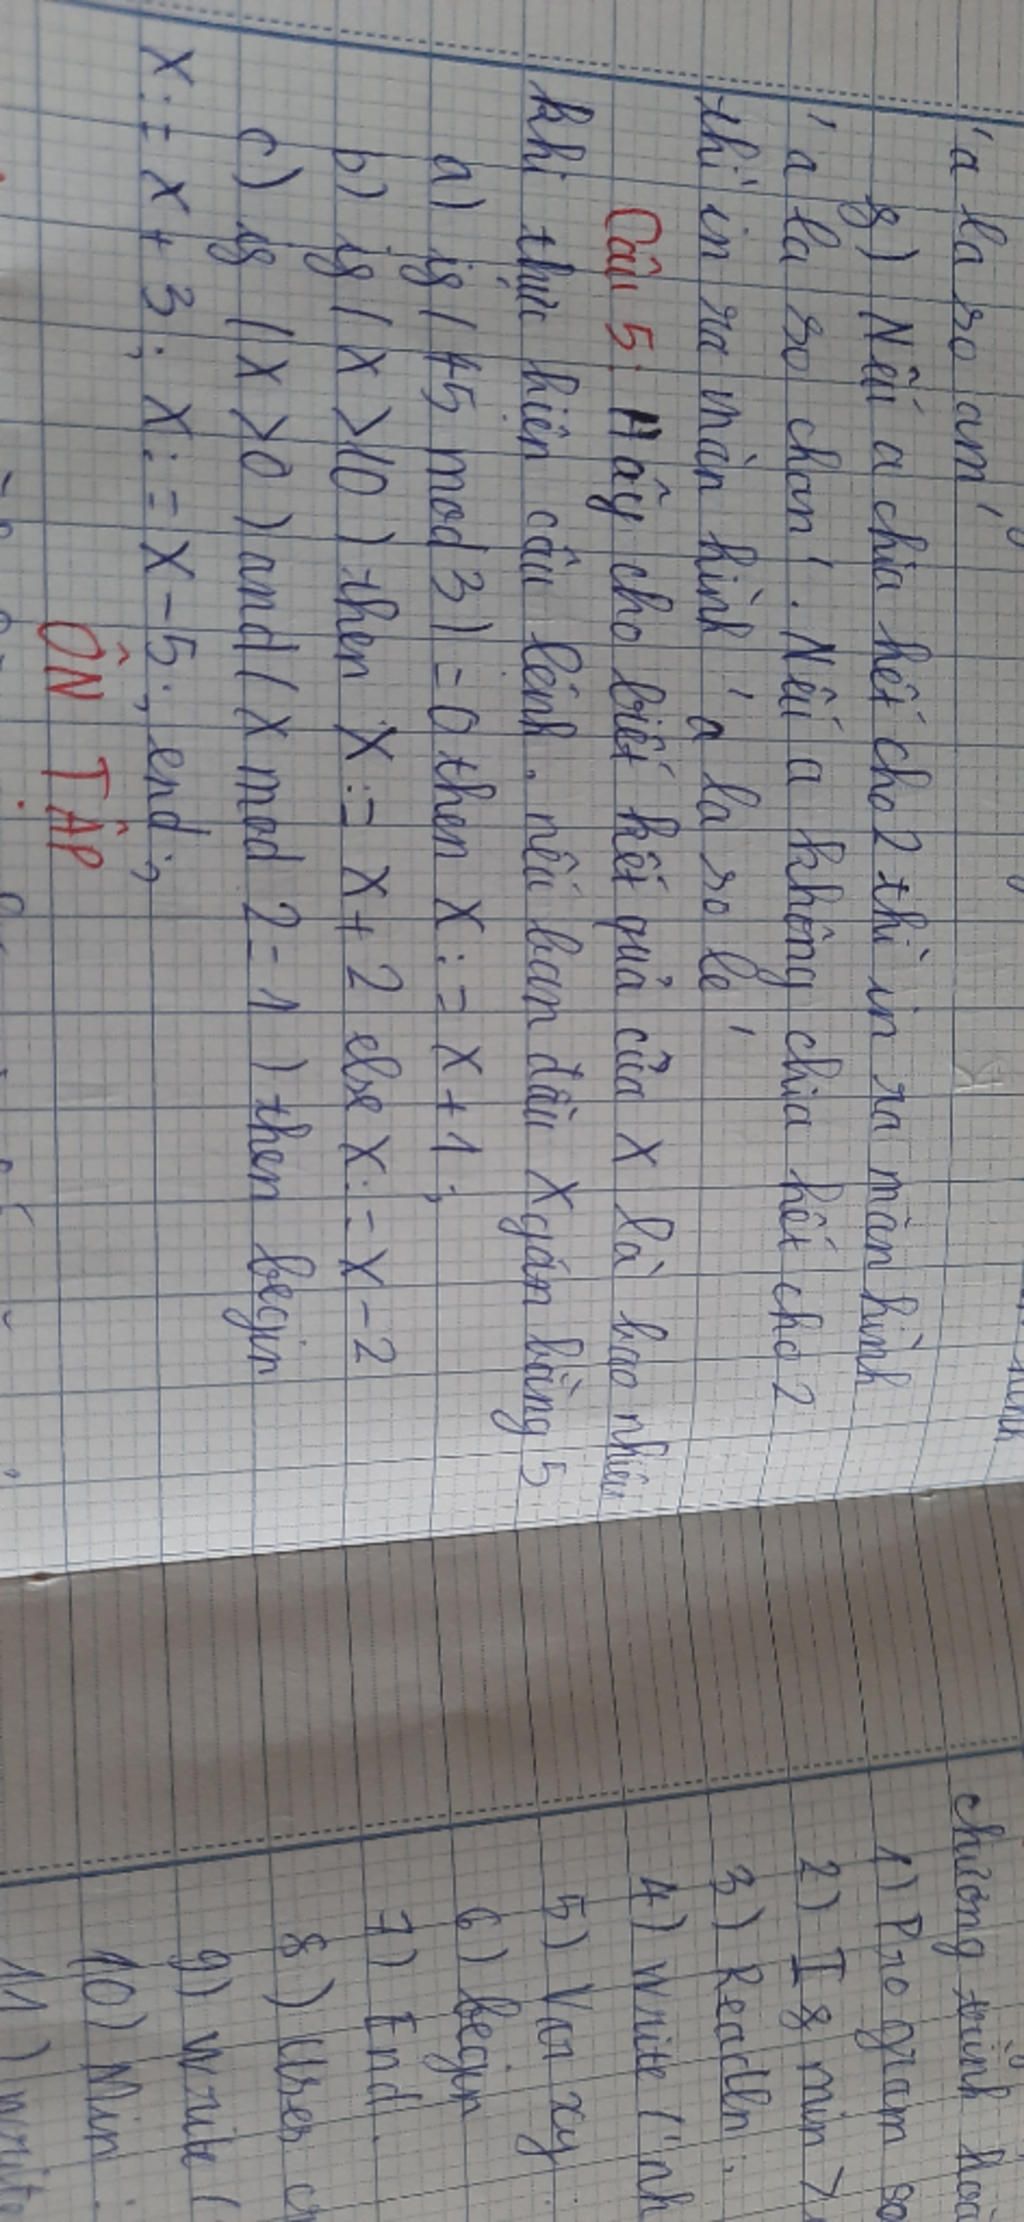 'a la so am'
g) Nếu a chia hết cho 2 thì in ra màn hình
'a la so chan'. Nếu a không chia hết cho 2
thì in ra màn hình 'a la so le'
Câu 5: Hãy cho biết kết quả của X là bao nhiêu
khi thực hiện câu lệnh, nếu ban đầu X gán bằng 5
a) if (45 mod 3) = 0 then X := X + 1;
b) if (X > 10) then X := X + 2 else X := X - 2
c) if (X > 0) and (X mod 2 = 1) then begin
X := X + 3; X := X - 5; end;
ÔN TẬP
chương trình hoà
1) Program
2) If min >
3) Readln;
4) Write ('nh
5) Var xy:
6) begin
7) End.
8) Uses cr
9) Write (
10) Min :
11) Write